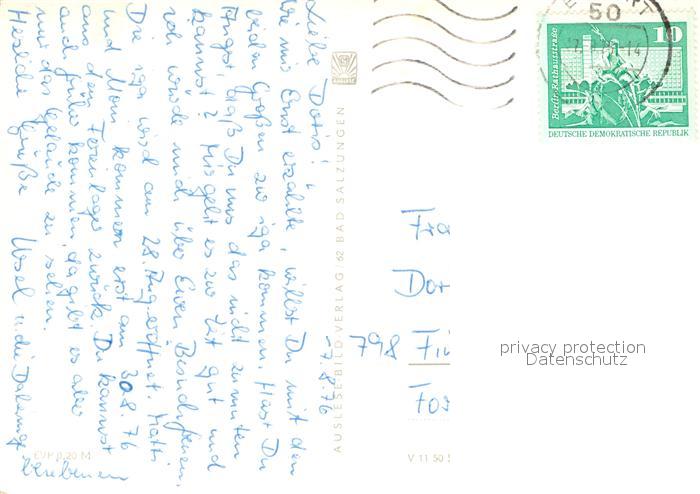 -7.8.76
Liebe Doris!
Wie mir Ernst erzählte, willst Du mit den
beiden Großen zu iga kommen. Hast Du
Angst, daß Du uns das nicht zumuten
kannst? Mir geht es zur Zeit gut und
würde mich über Euren Besuch freuen.
Die iga wird am 28. Aug. eröffnet. Matti
und Moni kommen erst am 30.8.76
aus dem Ferienlager zurück. Du kannst
auch früher kommen, da gibt es aber
nur das Gelände zu sehen.
Herzliche Grüße Usel u. die Daheimge-
bliebenen
EVP 0,20 M
AUSLESE-BILD-VERLAG 62 BAD SALZUNGEN
V 11 50
50
10
Berlin, Rathausstraße
DEUTSCHE DEMOKRATISCHE REPUBLIK
Fra
Dor
798 Fi
privacy protection
Datenschutz